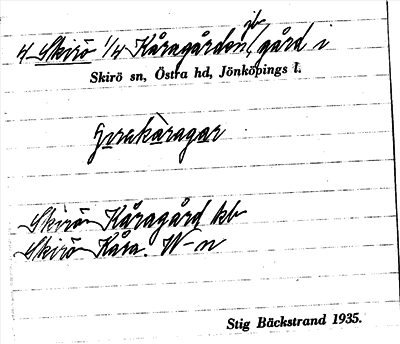 jb
4 Skirö 1/4 Kåragården, gård i
Skirö sn, Östra hd, Jönköpings l.
Skirö Kåragård kb
Skirö Kåra. W-n
Stig Bäckstrand 1935.